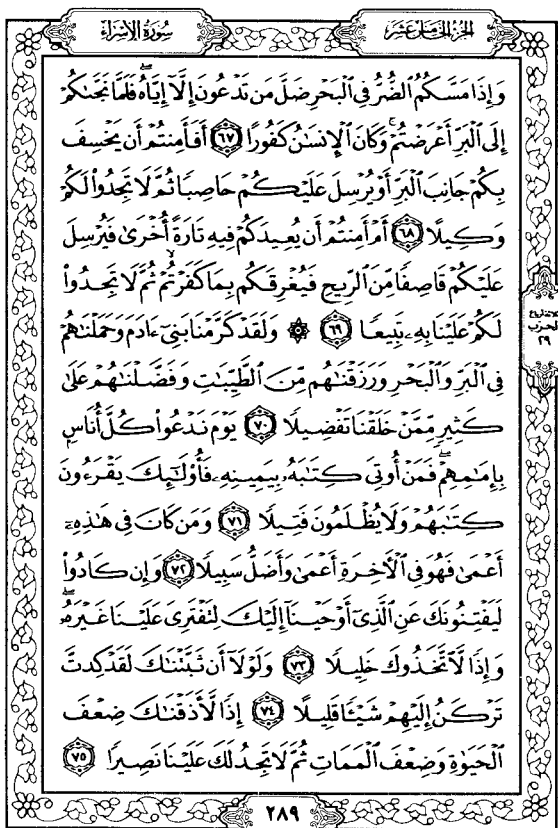 سُورَةُ الْإِسْرَاءِ
الجُزءُ الخَامِسَ عَشَرَ
وَإِذَا مَسَّكُمُ الضُّرُّ فِي الْبَحْرِ ضَلَّ مَن تَدْعُونَ إِلَّا إِيَّاهُ ۖ فَلَمَّا نَجَّىٰكُمْ
إِلَى الْبَرِّ أَعْرَضْتُمْ ۚ وَكَانَ الْإِنسَٰنُ كَفُورًا ٦٧ أَفَأَمِنتُمْ أَن يَخْسِفَ
بِكُمْ جَانِبَ الْبَرِّ أَوْ يُرْسِلَ عَلَيْكُمْ حَاصِبًا ثُمَّ لَا تَجِدُوا۟ لَكُمْ
وَكِيلًا ٦٨ أَمْ أَمِنتُمْ أَن يُعِيدَكُمْ فِيهِ تَارَةً أُخْرَىٰ فَيُرْسِلَ
عَلَيْكُمْ قَاصِفًا مِّنَ الرِّيحِ فَيُغْرِقَكُم بِمَا كَفَرْتُمْ ۙ ثُمَّ لَا تَجِدُوا۟
لَكُمْ عَلَيْنَا بِهِۦ تَبِيعًا ٦٩ ۞ وَلَقَدْ كَرَّمْنَا بَنِىٓ ءَادَمَ وَحَمَلْنَٰهُمْ
فِي الْبَرِّ وَالْبَحْرِ وَرَزَقْنَٰهُم مِّنَ الطَّيِّبَٰتِ وَفَضَّلْنَٰهُمْ عَلَىٰ
كَثِيرٍ مِّمَّنْ خَلَقْنَا تَفْضِيلًا ٧٠ يَوْمَ نَدْعُوا۟ كُلَّ أُنَاسٍ
بِإِمَٰمِهِمْ ۖ فَمَنْ أُوتِىَ كِتَٰبَهُۥ بِيَمِينِهِۦ فَأُو۟لَٰٓئِكَ يَقْرَءُونَ
كِتَٰبَهُمْ وَلَا يُظْلَمُونَ فَتِيلًا ٧١ وَمَن كَانَ فِى هَٰذِهِۦٓ
أَعْمَىٰ فَهُوَ فِي الْآخِرَةِ أَعْمَىٰ وَأَضَلُّ سَبِيلًا ٧٢ وَإِن كَادُوا۟
لَيَفْتِنُونَكَ عَنِ الَّذِىٓ أَوْحَيْنَآ إِلَيْكَ لِتَفْتَرِىَ عَلَيْنَا غَيْرَهُۥ ۖ
وَإِذًا لَّاتَّخَذُوكَ خَلِيلًا ٧٣ وَلَوْلَآ أَن ثَبَّتْنَٰكَ لَقَدْ كِدتَّ
تَرْكَنُ إِلَيْهِمْ شَيْـًٔا قَلِيلًا ٧٤ إِذًا لَّأَذَقْنَٰكَ ضِعْفَ
الْحَيَوٰةِ وَضِعْفَ الْمَمَاتِ ثُمَّ لَا تَجِدُ لَكَ عَلَيْنَا نَصِيرًا ٧٥
الحزب
٢٩
٢٨٩